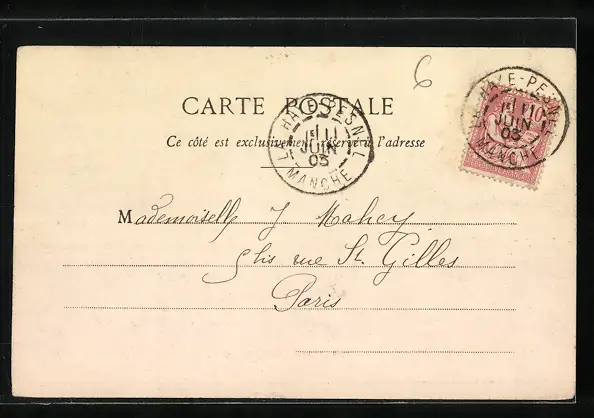 6
CARTE POSTALE
Ce côté est exclusivement réservé à l'adresse
LA HAYE-PESNEL
11
JUIN
03
MANCHE
LA HAYE-PESNEL
11
JUIN
03
MANCHE
10
Mademoiselle J Mahey
bis rue St. Gilles
Paris